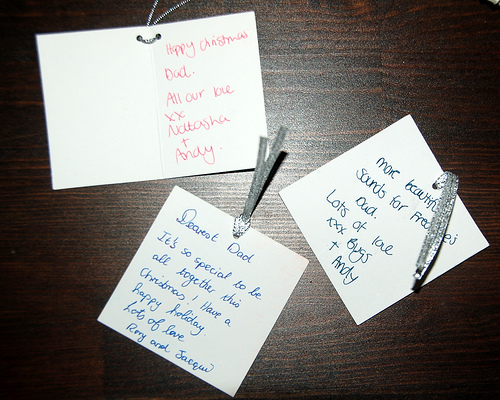 Happy Christmas
Dad.
All our love
xx
Natasha
+
Andy.
more beautiful
sounds for
Dad.
Lots of love
xxx Bugs
+ Andy
Dearest Dad
It's so special to be
all together this
Christmas! Have a
happy holiday.
Lots of love
Rory and Jacqui